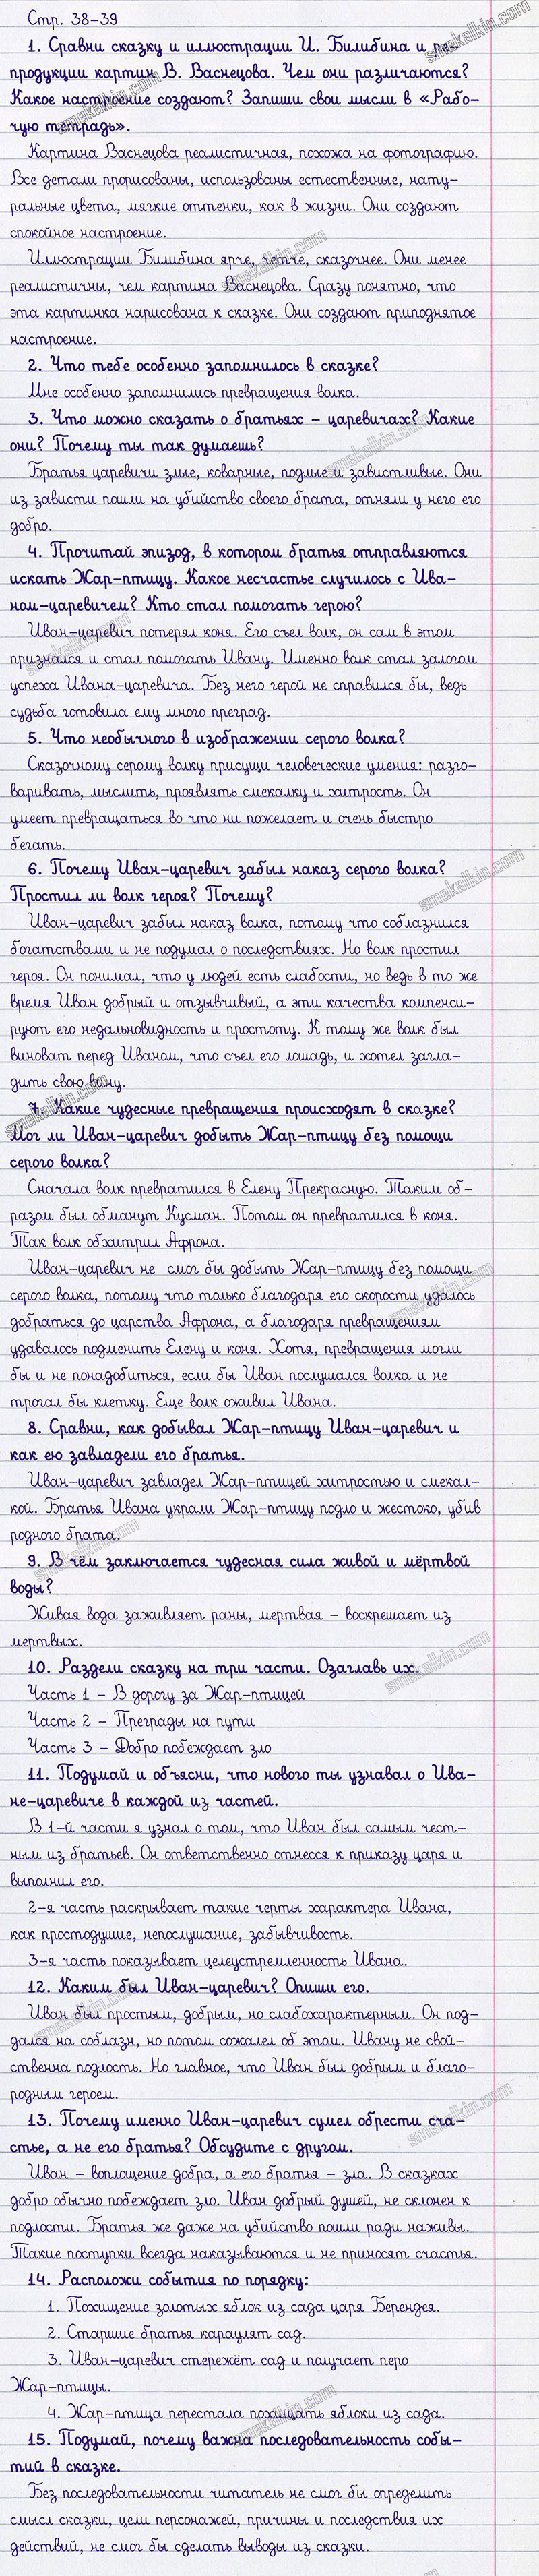 Стр. 38-39
1. Сравни сказку и иллюстрации И. Билибина и ре-
продукции картин В. Васнецова. Чем они различаются?
Какое настроение создают? Запиши свои мысли в «Рабо-
чую тетрадь».
Картина Васнецова реалистичная, похожа на фотографию.
Все детали прорисованы, использованы естественные, нату-
ральные цвета, мягкие оттенки, как в жизни. Они создают
спокойное настроение.
Иллюстрации Билибина ярче, четче, сказочнее. Они менее
реалистичны, чем картина Васнецова. Сразу понятно, что
эта картинка нарисована к сказке. Они создают приподнятое
настроение.
2. Что тебе особенно запомнилось в сказке?
Мне особенно запомнились превращения волка.
3. Что можно сказать о братьях – царевичах? Какие
они? Почему ты так думаешь?
Братья царевичи злые, коварные, подлые и завистливые. Они
из зависти пошли на убийство своего брата, отняли у него его
добро.
4. Прочитай эпизод, в котором братья отправляются
искать Жар-птицу. Какое несчастье случилось с Ива-
ном-царевичем? Кто стал помогать герою?
Иван-царевич потерял коня. Его съел волк, он сам в этом
признался и стал помогать Ивану. Именно волк стал залогом
успеха Ивана-царевича. Без него герой не справился бы, ведь
судьба готовила ему много преград.
5. Что необычного в изображении серого волка?
Сказочному серому волку присущи человеческие умения: разго-
варивать, мыслить, проявлять смекалку и хитрость. Он
умеет превращаться во что ни пожелает и очень быстро
бегать.
6. Почему Иван-царевич забыл наказ серого волка?
Простил ли волк героя? Почему?
Иван-царевич забыл наказ волка, потому что соблазнился
богатствами и не подумал о последствиях. Но волк простил
героя. Он понимал, что у людей есть слабости, но ведь в то же
время Иван добрый и отзывчивый, а эти качества компенси-
руют его недальновидность и простоту. К тому же волк был
виноват перед Иваном, что съел его лошадь, и хотел загла-
дить свою вину.
7. Какие чудесные превращения происходят в сказке?
Мог ли Иван-царевич добыть Жар-птицу без помощи
серого волка?
Сначала волк превратился в Елену Прекрасную. Таким об-
разом был обманут Кусман. Потом он превратился в коня.
Так волк обхитрил Афрона.
Иван-царевич не смог бы добыть Жар-птицу без помощи
серого волка, потому что только благодаря его скорости удалось
добраться до царства Афрона, а благодаря превращениям
удавалось подменить Елену и коня. Хотя, превращения могли
бы и не понадобиться, если бы Иван послушался волка и не
трогал бы клетку. Еще волк оживил Ивана.
8. Сравни, как добывал Жар-птицу Иван-царевич и
как ею завладели его братья.
Иван-царевич завладел Жар-птицей хитростью и смекал-
кой. Братья Ивана украли Жар-птицу подло и жестоко, убив
родного брата.
9. В чём заключается чудесная сила живой и мёртвой
воды?
Живая вода заживляет раны, мертвая – воскрешает из
мертвых.
10. Раздели сказку на три части. Озаглавь их.
Часть 1 – В дорогу за Жар-птицей
Часть 2 – Преграды на пути
Часть 3 – Добро побеждает зло
11. Подумай и объясни, что нового ты узнавал о Ива-
не-царевиче в каждой из частей.
В 1-й части я узнал о том, что Иван был самым чест-
ным из братьев. Он ответственно отнесся к приказу царя и
выполнил его.
2-я часть раскрывает такие черты характера Ивана,
как простодушие, непослушание, забывчивость.
3-я часть показывает целеустремленность Ивана.
12. Каким был Иван-царевич? Опиши его.
Иван был простым, добрым, но слабохарактерным. Он под-
дался на соблазн, но потом сожалел об этом. Ивану не свой-
ственна подлость. Но главное, что Иван был добрым и благо-
родным героем.
13. Почему именно Иван-царевич сумел обрести сча-
стье, а не его братья? Обсудите с другом.
Иван – воплощение добра, а его братья – зла. В сказках
добро обычно побеждает зло. Иван добрый душей, не склонен к
подлости. Братья же даже на убийство пошли ради наживы.
Такие поступки всегда наказываются и не приносят счастья.
14. Расположи события по порядку:
1. Похищение золотых яблок из сада царя Берендея.
2. Старшие братья караулят сад.
3. Иван-царевич стережёт сад и получает перо
Жар-птицы.
4. Жар-птица перестала похищать яблоки из сада.
15. Подумай, почему важна последовательность собы-
тий в сказке.
Без последовательности читатель не смог бы определить
смысл сказки, цели персонажей, причины и последствия их
действий, не смог бы сделать выводы из сказки.